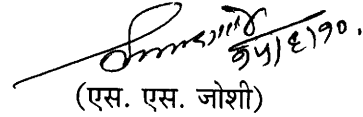 २५/६/१०.
(एस. एस. जोशी)